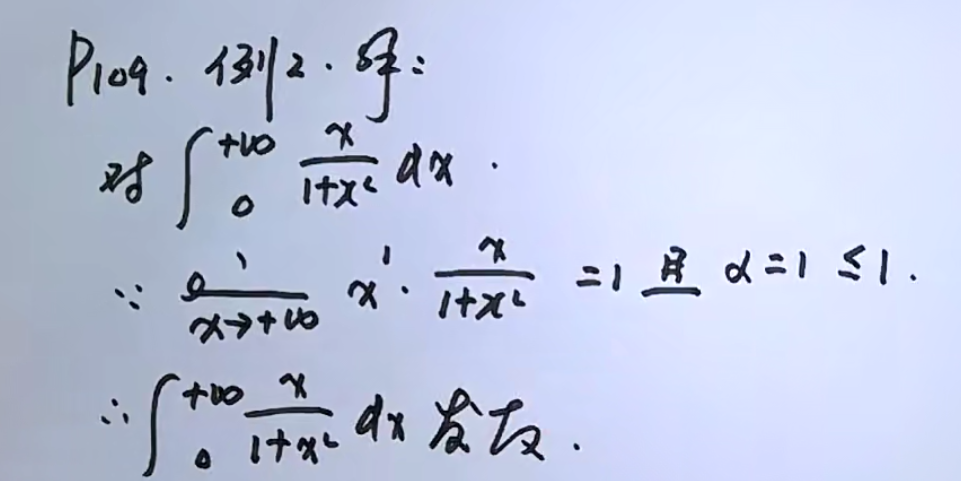 P109. 例2. 解:
对 ∫_0^{+∞} x/(1+x²) dx.
∵ lim_{x→+∞} x^1 · x/(1+x²) = 1 且 α = 1 ≤ 1.
∴ ∫_0^{+∞} x/(1+x²) dx 发散.